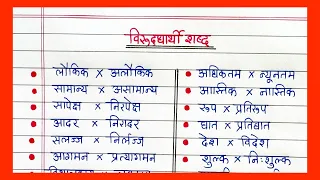 विरूद्धार्थी शब्द
लौकिक × अलौकिक
सामान्य × असामान्य
सापेक्ष × निरपेक्ष
आदर × निरादर
सलज्ज × निर्लज्ज
आगमन × प्रत्यागमन
अधिकतम × न्यूनतम
आस्तिक × नास्तिक
रूप × प्रतिरूप
घात × प्रतिघात
देश × विदेश
शुल्क × निःशुल्क